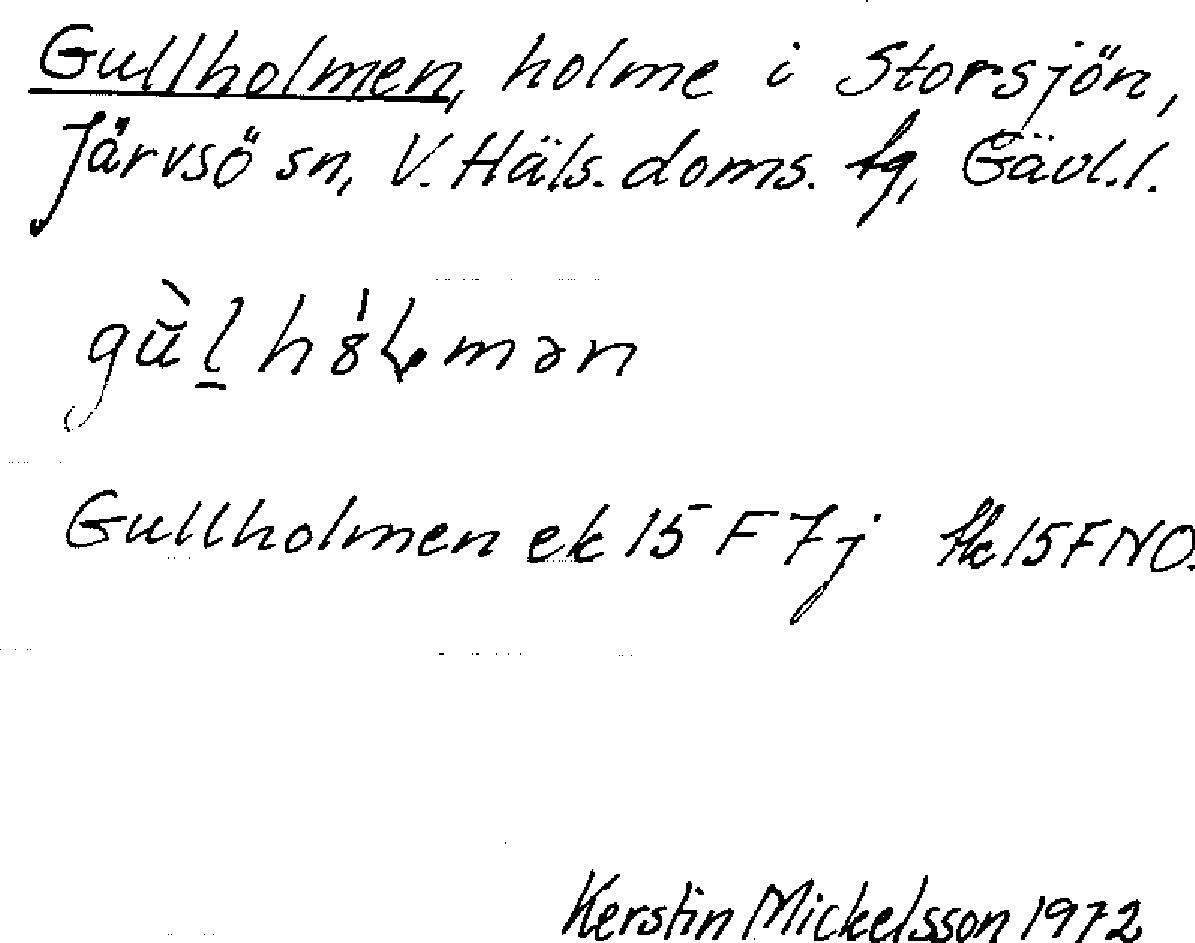 Gullholmen, holme i Storsjön,
Järvsö sn, V. Häls. doms. tg, Gävl.l.
Gullholmen ek 15 F 7j fk 15F NO.
Kerstin Mickelsson 1972